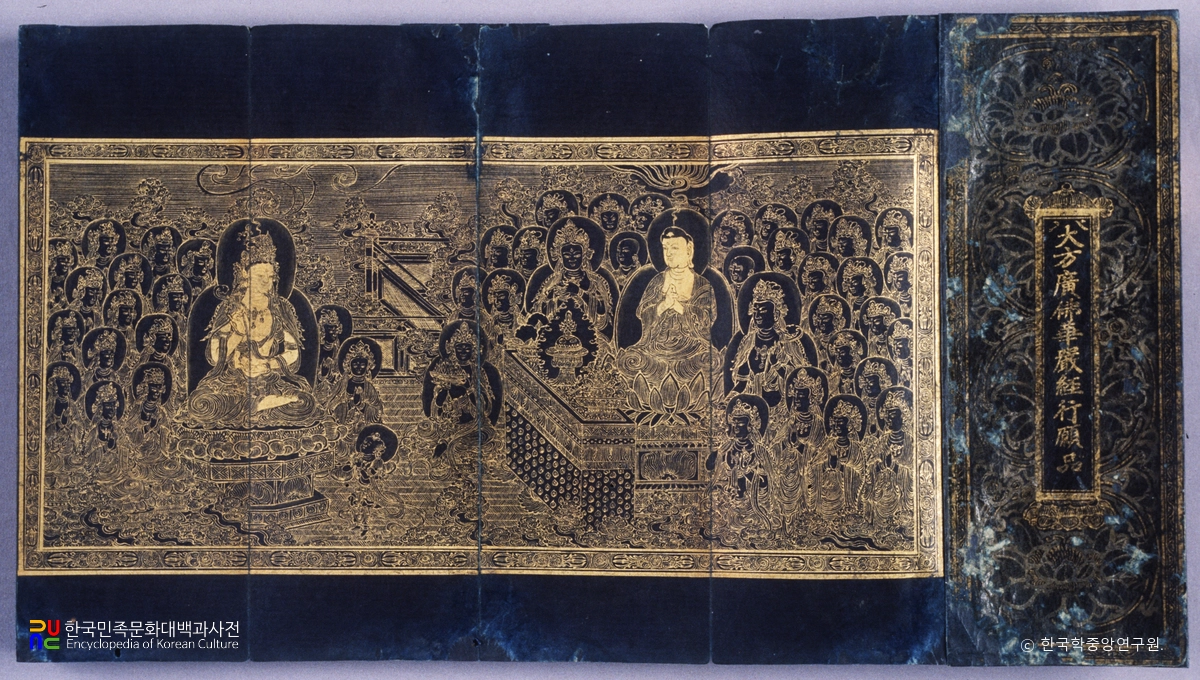 大方廣佛華嚴經行願品
한국민족문화대백과사전
Encyclopedia of Korean Culture
ⓒ 한국학중앙연구원.